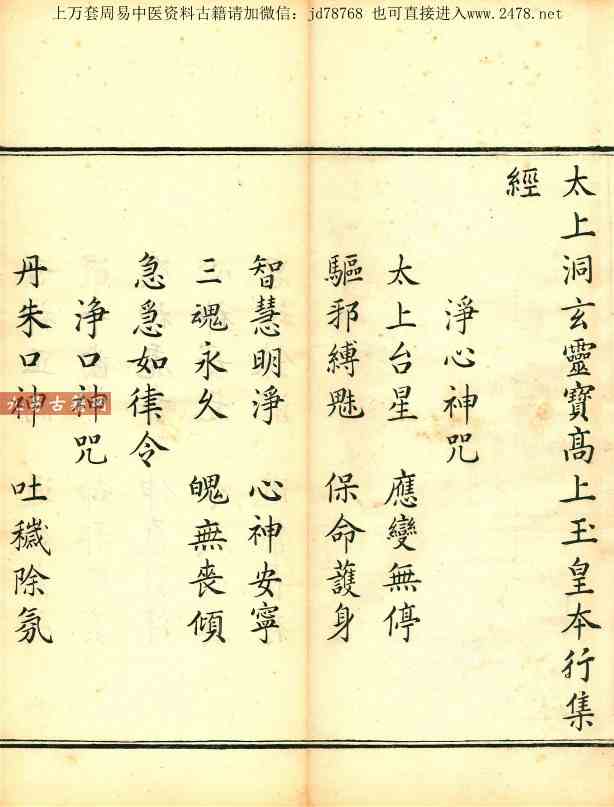 上万套周易中医资料古籍请加微信：jd78768 也可直接进入www.2478.net
太上洞玄靈寶高上玉皇本行集
經
淨心神咒
太上台星 應變無停
驅邪縛魅 保命護身
智慧明淨 心神安寧
三魂永久 魄無喪傾
急急如律令
淨口神咒
丹朱口神 吐穢除氛